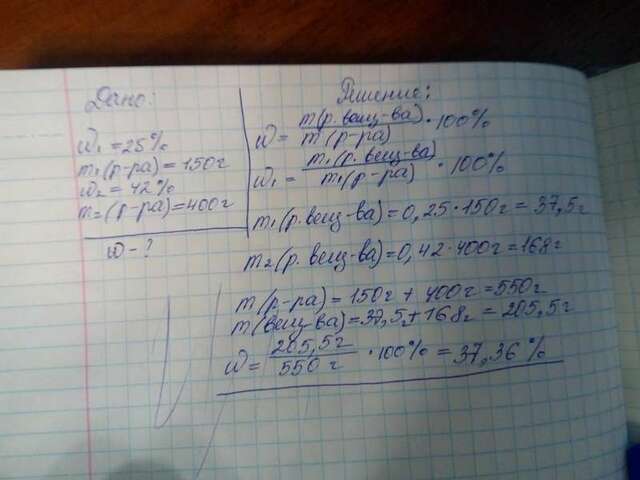 Дано:
ω₁ = 25%
m₁(р-ра) = 150г
ω₂ = 42%
m₂(р-ра) = 400г
ω - ?
Решение:
ω = m(р. вещ-ва) / m(р-ра) · 100%
ω₁ = m₁(р. вещ-ва) / m₁(р-ра) · 100%
m₁(р. вещ-ва) = 0,25 · 150г = 37,5г
m₂(р. вещ-ва) = 0,42 · 400г = 168г
m(р-ра) = 150г + 400г = 550г
m(вещ-ва) = 37,5г + 168г = 205,5г
ω = 205,5г / 550г · 100% = 37,36%